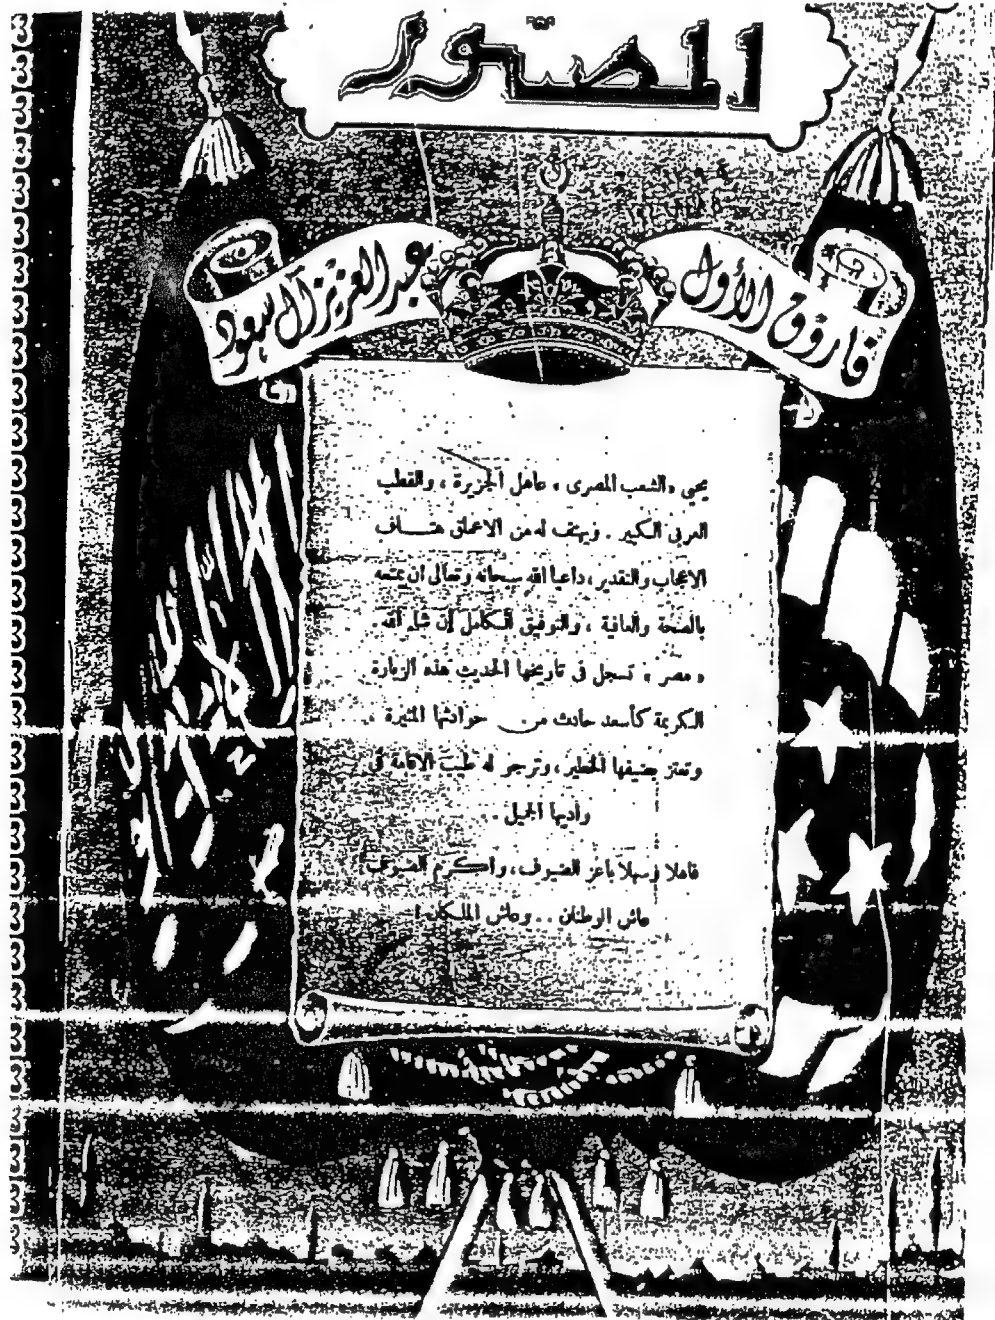 المصور
فاروق الأول
عبد العزيز آل سعود
يحيى «الشعب المصرى» عاهل الجزيرة ، والقطب
العربى الكبير . ويهتف له من الاعماق هتــاف
الاعجاب والتقدير ، داعيا الله سبحانه وتعالى ان يمتعه
بالصحة والعافية ، والتوفيق الكامل إن شاء الله .
« مصر » تسجل فى تاريخها الحديث هذه الزيارة
الكريمة كأسعد حادث من حوادثها المثيرة ،
وتعتز بضيفها الخطير ، وترجو له طيب الاقامة فى
واديها الجميل .
فاهلا وسهلا بأعز الضيوف ، وأكرم الضيوف !
عاش الوطنان .. وعاش الملكان !